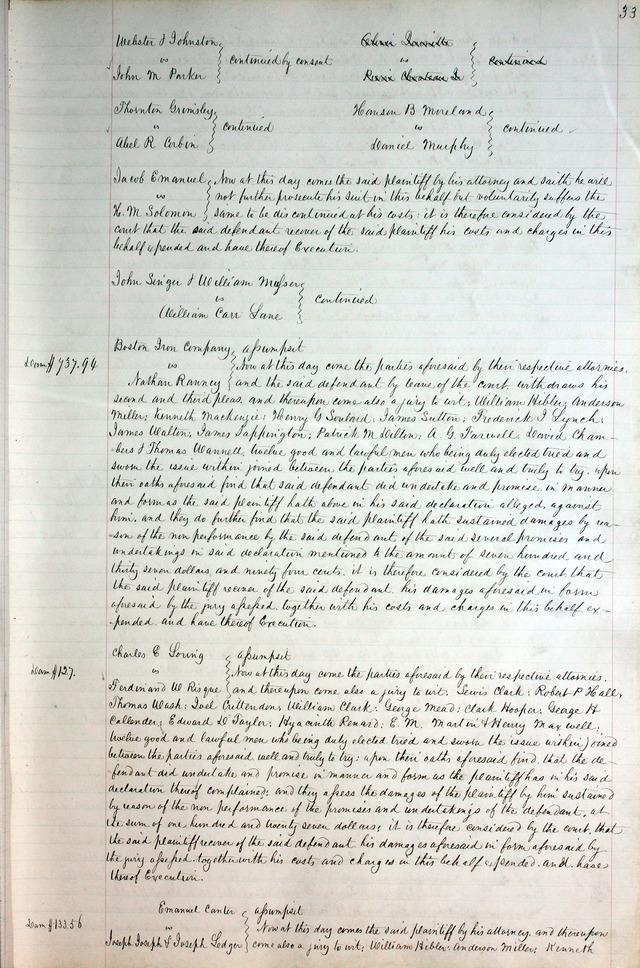 33
Webster & Johnston
vs
John M Parker
continued by consent
vs
continued
Thornton Grimsley
vs
Abel R Corbin
continued
Harrison B Moreland
vs
Daniel Murphy
continued
Jacob Emanuel
vs
H. M. Solomon
Now at this day comes the said plaintiff by his attorney and saith he will
not further prosecute his suit in this behalf but voluntarily suffers the
same to be discontinued at his costs: it is therefore considered by the
court that the said defendant recover of the said plaintiff his costs and charges in this
behalf expended and have thereof Execution.
John Singer & William Musser
vs
William Carr Lane
continued
Boston Iron Company
vs
Nathan Ranney
assumpsit
Dam $737.94
Now at this day come the parties aforesaid by their respective attornies.
and the said defendant by leave of the court, withdraws his
second and third pleas. and thereupon come also a jury to wit; William Hibler; Anderson
Miller; Kenneth Mackenzie; Henry G Soulard; James Sutton; Frederick J Lynch;
James Walton; James Tappington; Patrick M Dillon; A. G. Farwell; David Cham-
bers & Thomas Wannell, twelve good and lawful men who being duly elected tried and
sworn the issue within joined between the parties aforesaid well and truly to try; upon
their oaths aforesaid find that said defendant did undertake and promise in manner
and form as the said plaintiff hath above in his said declaration alleged, against
him, and they do further find that the said plaintiff hath sustained damages by rea-
-son of the non performance by the said defendant of the said several promises and
undertakings in said declaration mentioned to the amount of seven hundred and
thirty seven dollars, and ninety four cents. it is therefore considered by the court that
the said plaintiff recover of the said defendant his damages aforesaid in form
aforesaid by the jury assessed together with his costs and charges in this behalf ex-
-pended. and have thereof Execution.
Charles E Loring
vs
Ferdinand W Risque
assumpsit
Dam $127.
Now at this day come the parties aforesaid by their respective attornies.
and thereupon come also a jury to wit: Lewis Clark; Robert P Hall;
Thomas Wash; Joel Crittendon; William Clark; George Mead; Clark Hooper; George H
Callender; Edward D Taylor; Hyacinth Renard; E. M. Martin & Henry Maxwell;
twelve good and lawful men who being duly elected tried and sworn the issue within joined
between the parties aforesaid well and truly to try; upon their oaths aforesaid find, that the de-
-fendant did undertake and promise in manner and form as the plaintiff has in his said
declaration thereof complained; and they assess the damages of the plaintiff by him sustained
by reason of the non performance of the promises and undertakings of the defendant, at
the sum of one hundred and twenty seven dollars; it is therefore considered by the court, that
the said plaintiff recover of the said defendant his damages aforesaid in form aforesaid by
the jury assessed together with his costs and charges in this behalf expended. and have
thereof Execution.
Emanuel Canter
vs
Joseph Joseph & Joseph Ledger
assumpsit
Dam $133.56
Now at this day comes the said plaintiff by his attorney and thereupon
come also a jury to wit; William Hibler; Anderson Miller; Kenneth